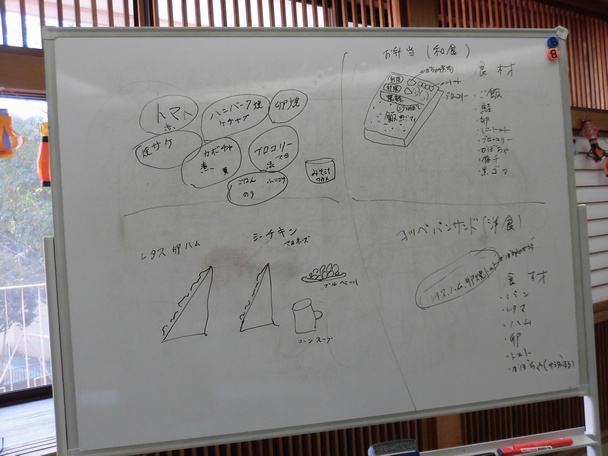 トマト
ハンバーグ
ケチャップ
卵焼
焼サケ
カボチャ
煮
ブロコリー
マヨ
ごはん
ふりかけ
のり
みそしる
ワカメ
お弁当 (和食)
食材
・ご飯
・鮭
・卵
・ミニトマト
・ブロッコリー
・かぼちゃ
・黒ゴマ
レタス 卵 ハム
シーチキン
マヨネーズ
ブルーベリー
コーンスープ
コッペパンサンド (洋食)
食材
・パン
・レタス
・ハム
・卵
・トマト
・かぼちゃ(サラダ)